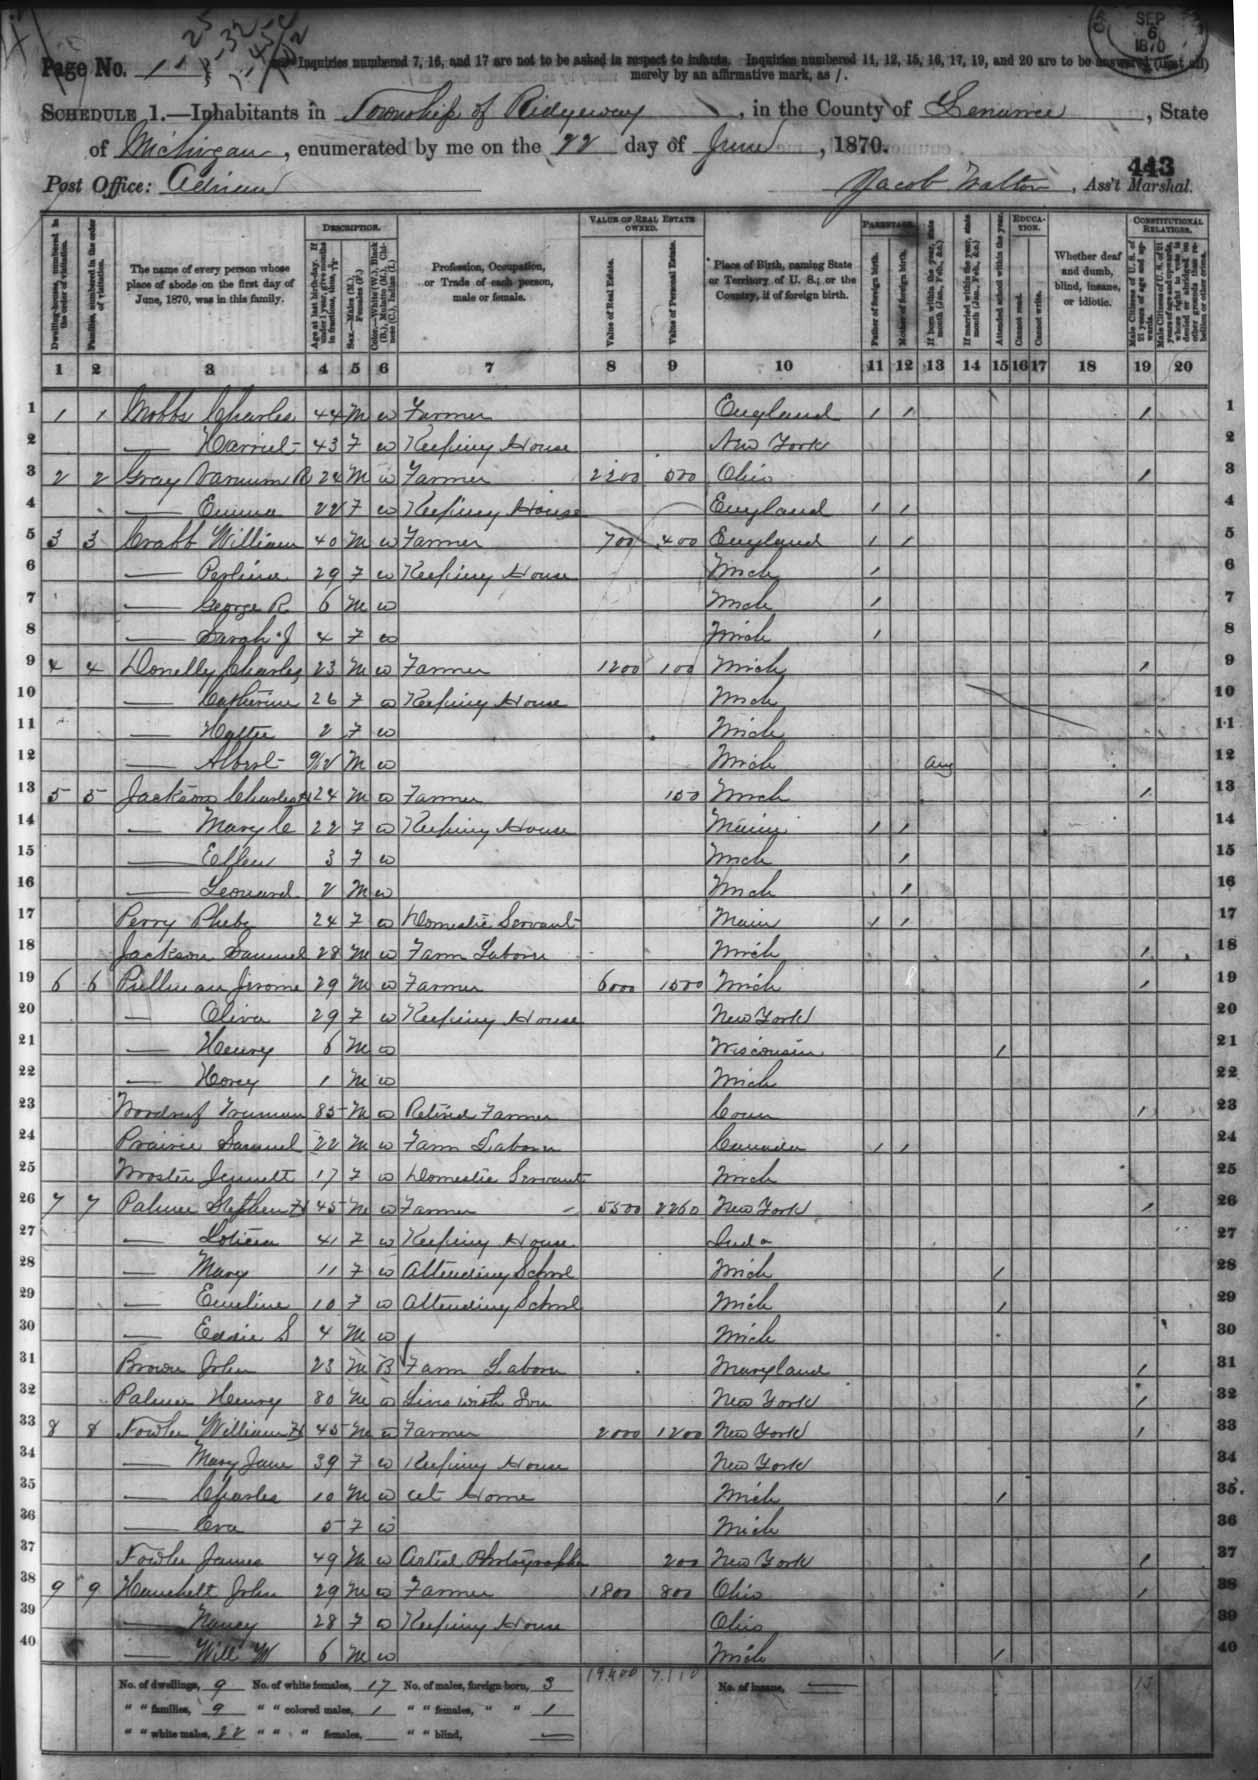 Page No. 1
Inquiries numbered 7, 16, and 17 are not to be asked in respect to infants. Inquiries numbered 11, 12, 15, 16, 17, 19, and 20 are to be answered (if at all)
merely by an affirmative mark, as /.
SEP 6 1870
SCHEDULE 1.—Inhabitants in Township of Ridgeway, in the County of Lenawee, State
of Michigan, enumerated by me on the 22 day of June, 1870.
443
Post Office: Adrian Jacob Walton, Ass't Marshal.
Dwelling-houses, numbered in the order of visitation.
Families, numbered in the order of visitation.
The name of every person whose place of abode on the first day of June, 1870, was in this family.
DESCRIPTION.
Age at last birth-day. If under 1 year, give months in fractions, thus, 3/12
Sex.—Males (M.), Females (F.)
Color.—White (W.), Black (B.), Mulatto (M.), Chinese (C.), Indian (I.)
Profession, Occupation, or Trade of each person, male or female.
VALUE OF REAL ESTATE OWNED.
Value of Real Estate.
Value of Personal Estate.
Place of Birth, naming State or Territory of U. S.; or the Country, if of foreign birth.
PARENTAGE.
Father of foreign birth.
Mother of foreign birth.
If born within the year, state month (Jan., Feb., &c.)
If married within the year, state month (Jan., Feb., &c.)
Attended school within the year.
EDUCATION.
Cannot read.
Cannot write.
Whether deaf and dumb, blind, insane, or idiotic.
CONSTITUTIONAL RELATIONS.
Male Citizens of U. S. of 21 years of age and upwards.
Male Citizens of U. S. of 21 years of age and upwards, whose right to vote is denied or abridged on other grounds than rebellion or other crime.
1 2 3 4 5 6 7 8 9 10 11 12 13 14 15 16 17 18 19 20
1 1 1 Charles 44 M W Farmer England / / / 1
2 — Harriet 43 F W Keeping House New York 2
3 2 2 Gray Varnum R 24 M W Farmer 2200 500 Ohio / 3
4 — Emma 22 F W Keeping House England / / 4
5 3 3 Crabb William 40 M W Farmer 700 400 England / / 5
6 — Perlina 29 F W Keeping House Mich / 6
7 — George R 6 M W Mich / 7
8 — Sarah J 4 F W Mich / 8
9 4 4 Donelly Charles 23 M W Farmer 1200 100 Mich / 9
10 — Catherine 26 F W Keeping House Mich 10
11 — Hattie 2 F W Mich 11
12 — Albert 9/12 M W Mich Aug 12
13 5 5 Jackson Charles H 24 M W Farmer 150 Mich / 13
14 — Mary C 22 F W Keeping House Maine / / 14
15 — Ellen 3 F W Mich / 15
16 — Leonard 2 M W Mich / 16
17 Perry Phebe 24 F W Domestic Servant Main / / 17
18 Jackson Samuel 28 M W Farm Labour Mich / 18
19 6 6 Pullman Jerome 29 M W Farmer 6000 1500 Mich / 19
20 — Oliva 29 F W Keeping House New York 20
21 — Henry 6 M W Wisconsin / 21
22 — Horey 1 M W Mich 22
23 Woodruf Truman 85 M W Retired Farmer Conn / 23
24 Prairie Samuel 22 M W Farm Labour Canada / / 24
25 Jennett 17 F W Domestic Servant Mich 25
26 7 7 Palmer Stephen H 45 M W Farmer 5500 2260 New York / 26
27 — 41 F W Keeping House 27
28 — Mary 11 F W Attending School Mich / 28
29 — Emeline 10 F W Attending School Mich / 29
30 — Eddie S 4 M W Mich 30
31 Brown John 23 M B Farm Labour Maryland / 31
32 Palmer Henry 80 M W Lives with Son New York / 32
33 8 8 Fowler William H 45 M W Farmer 2000 1200 New York / 33
34 — Mary Jane 39 F W Keeping House New York 34
35 — Charles 10 M W At Home Mich / 35
36 — Eva 5 F W Mich 36
37 Fowler James 49 M W Artist Photographer 200 New York / 37
38 9 9 John 29 M W Farmer 1800 800 Ohio / 38
39 — Nancy 28 F W Keeping House Ohio 39
40 — Will W 6 M W Mich / 40
No. of dwellings, 9 No. of white females, 17 No. of males, foreign born, 3 19,400 7,110 No. of insane, — 13
" " families, 9 " " colored males, 1 " " females, " " 1
" " white males, 22 " " " females, " " blind, —